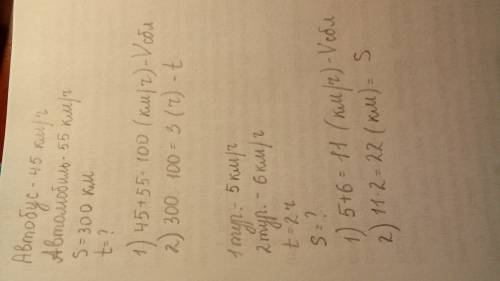 Автобус - 45 км/ч
Автомобиль - 55 км/ч
S = 300 км
t = ?
1) 45+55=100 (км/ч) - Vсбл
2) 300 : 100 = 3 (ч) - t
1 тур. - 5 км/ч
2 тур. - 6 км/ч
t = 2 ч
S = ?
1) 5+6 = 11 (км/ч) - Vсбл
2) 11·2 = 22 (км) = S